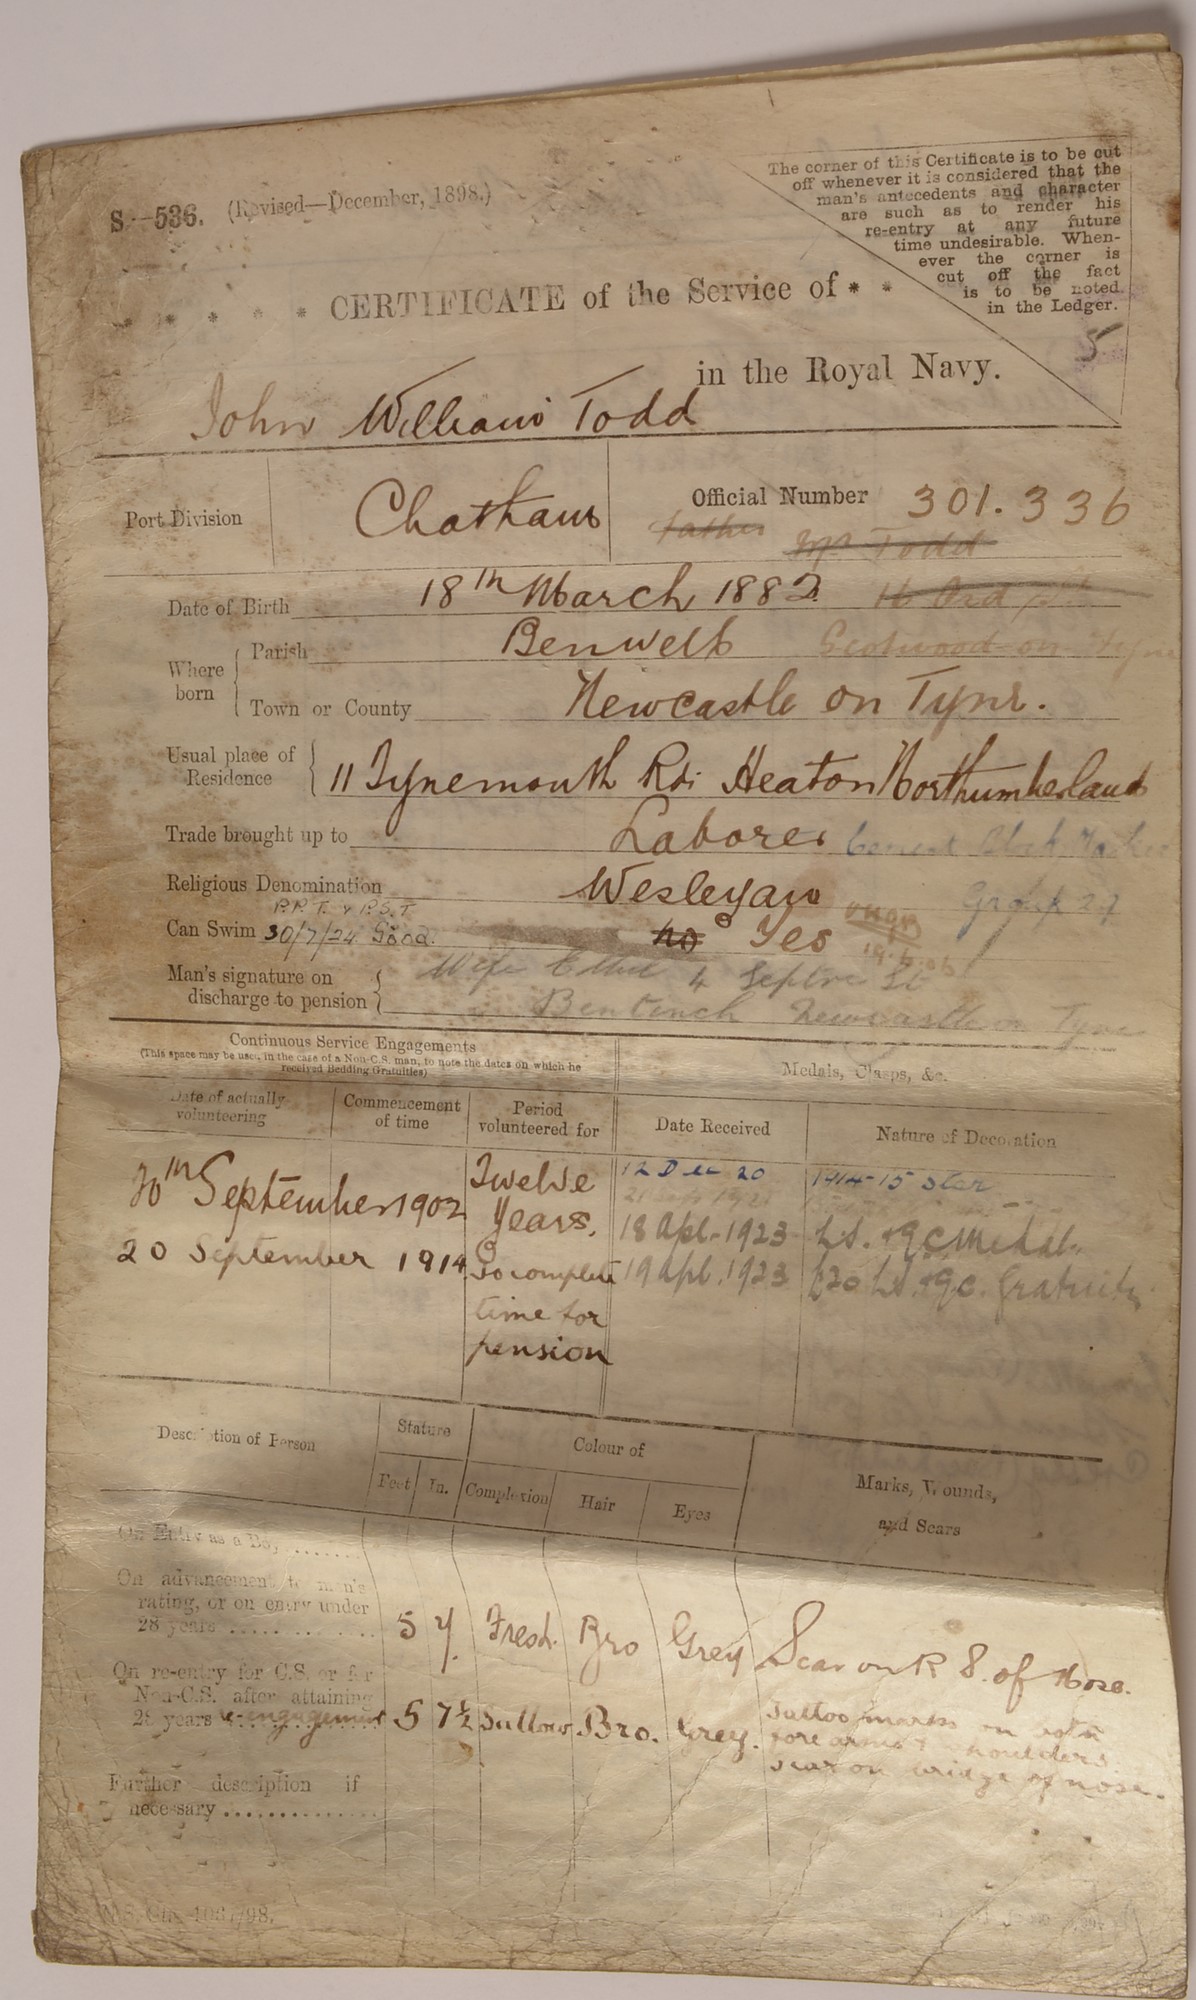 The corner of this Certificate is to be cut
off whenever it is considered that the
man's antecedents and character
are such as to render his
re-entry at any future
time undesirable. When-
ever the corner is
cut off the fact
is to be noted
in the Ledger.
5
S.—536. (Revised—December, 1898.)
* * * * * CERTIFICATE of the Service of * *
in the Royal Navy.
John William Todd
Port Division Chatham
Official Number 301.336
father Mr Todd
Date of Birth 18th March 1882. 16 Ord
Where born { Parish Benwell Scotswood-on-Tyne
Town or County Newcastle on Tyne.
Usual place of Residence { 11 Tynemouth Rd. Heaton Northumberland
Trade brought up to Laborer Cement Block Maker
Religious Denomination Wesleyan Group 27
P.P.T. & P.S.T
Can Swim 30/7/24 Good. no Yes
19.6.06
Man's signature on
discharge to pension {
Wife Ethel 4 Septre St
Bentinck Newcastle on Tyne
Continuous Service Engagements
(This space may be used in the case of a Non-C.S. man, to note the dates on which he
received Bedding Gratuities)
Medals, Clasps, &c.
Date of actually
volunteering
Commencement
of time
Period
volunteered for
Date Received
Nature of Decoration
20th September 1902 Twelve Years.
20 September 1914 To complete time for pension
12 Dec 20 1914-15 Star
18 Apl. 1923 L.S. & G C Medal.
19 Apl. 1923 £20 L.S. & G.C. Gratuity
Description of Person
Stature
Feet In.
Colour of
Complexion Hair Eyes
Marks, Wounds,
and Scars
On Entry as a Boy, .......
On advancement to man's
rating, or on entry under
28 years ............
5 7. Fresh. Bro Grey Scar on R S. of Nose.
On re-entry for C.S. or for
Non-C.S. after attaining
28 years re-engagement
5 7½ Sallow Bro. Grey.
Tattoo marks on both
fore arms & shoulders
scar on bridge of nose.
Further description if
necessary .............